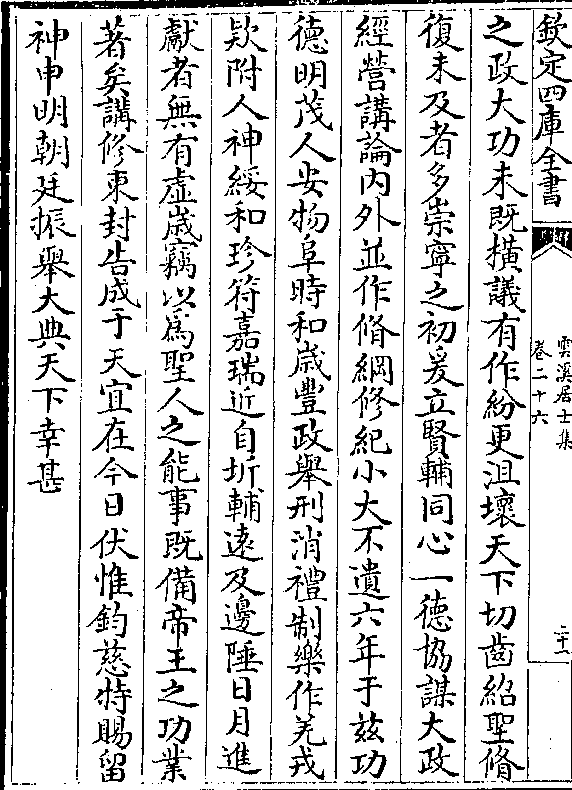 欽定四庫全書
雲溪居士集
卷二十六
二十一
之政大功未既橫議有作紛更沮壞天下切齒紹聖脩
復未及者多崇寧之初爰立賢輔同心一德協謀大政
經營講論内外並作脩綱修紀小大不遺六年于兹功
德明茂人安物阜時和歳豐政舉刑消禮制樂作羌戎
欵附人神綏和珍符嘉瑞近自圻輔逺及邊陲日月進
獻者無有虚歳竊以為聖人之能事既備帝王之功業
著矣講修東封告成于天宜在今日伏惟鈞慈特賜留
神申明朝廷振舉大典天下幸甚